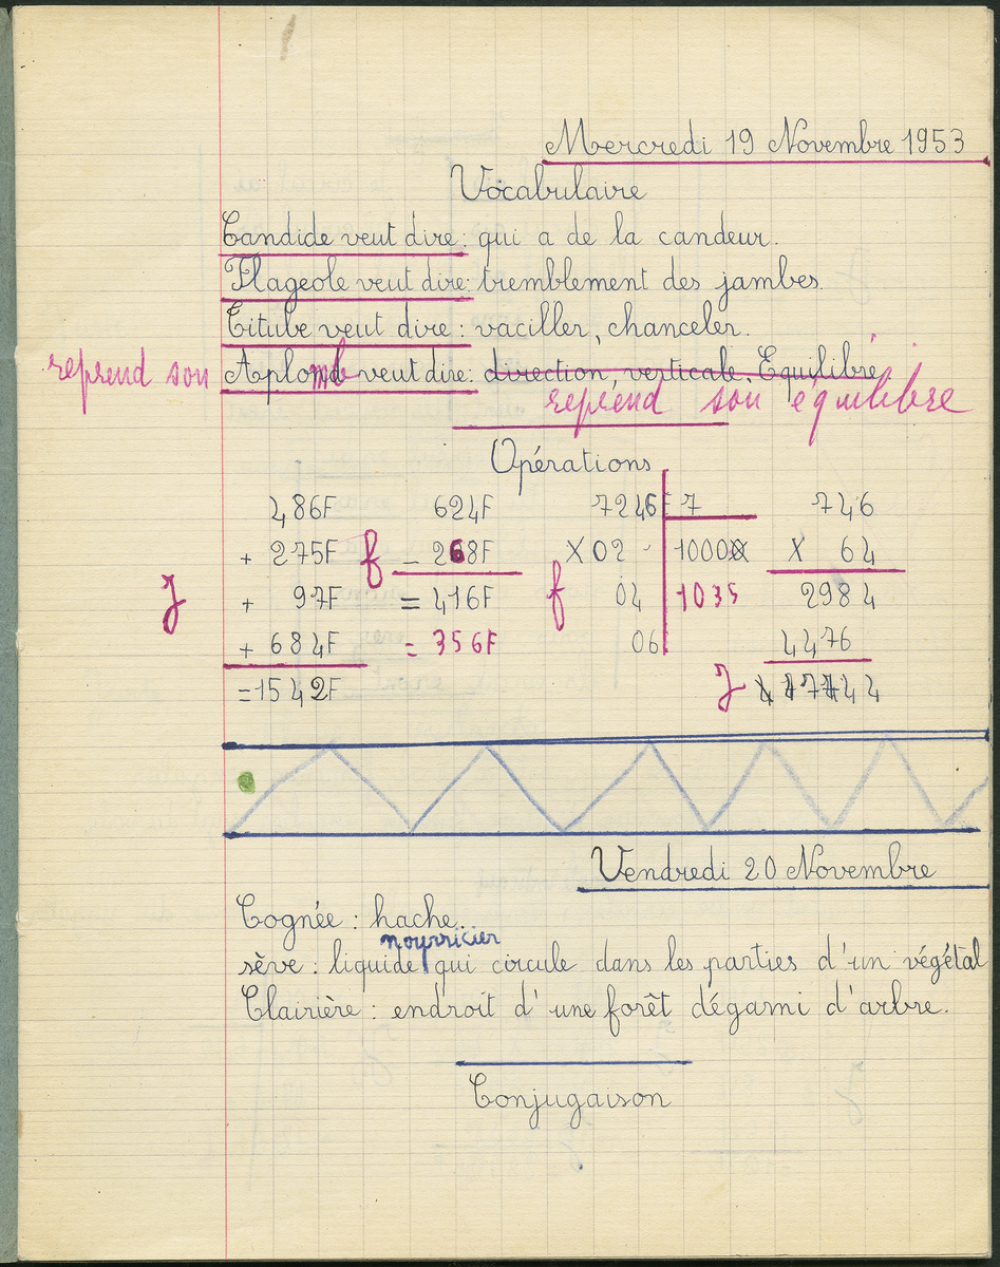 Mercredi 19 Novembre 1953
Vocabulaire
Candide veut dire : qui a de la candeur.
Flageole veut dire : tremblement des jambes.
Titube veut dire : vaciller, chanceler.
reprend son Aplomb veut dire : direction, verticale. Equilibre,
reprend son équilibre
Opérations
486F 624F 7246F 7 746
+ 275F f - 268F X02 1000 X 64
J + 97F = 416F f 04 1035 2984
+ 684F = 356F 06 4476
=1542F J 47744
Vendredi 20 Novembre
Cognée : hache.
nourricier
sève : liquide qui circule dans les parties d'un végétal
Clairière : endroit d'une forêt dégarni d'arbre.
Conjugaison